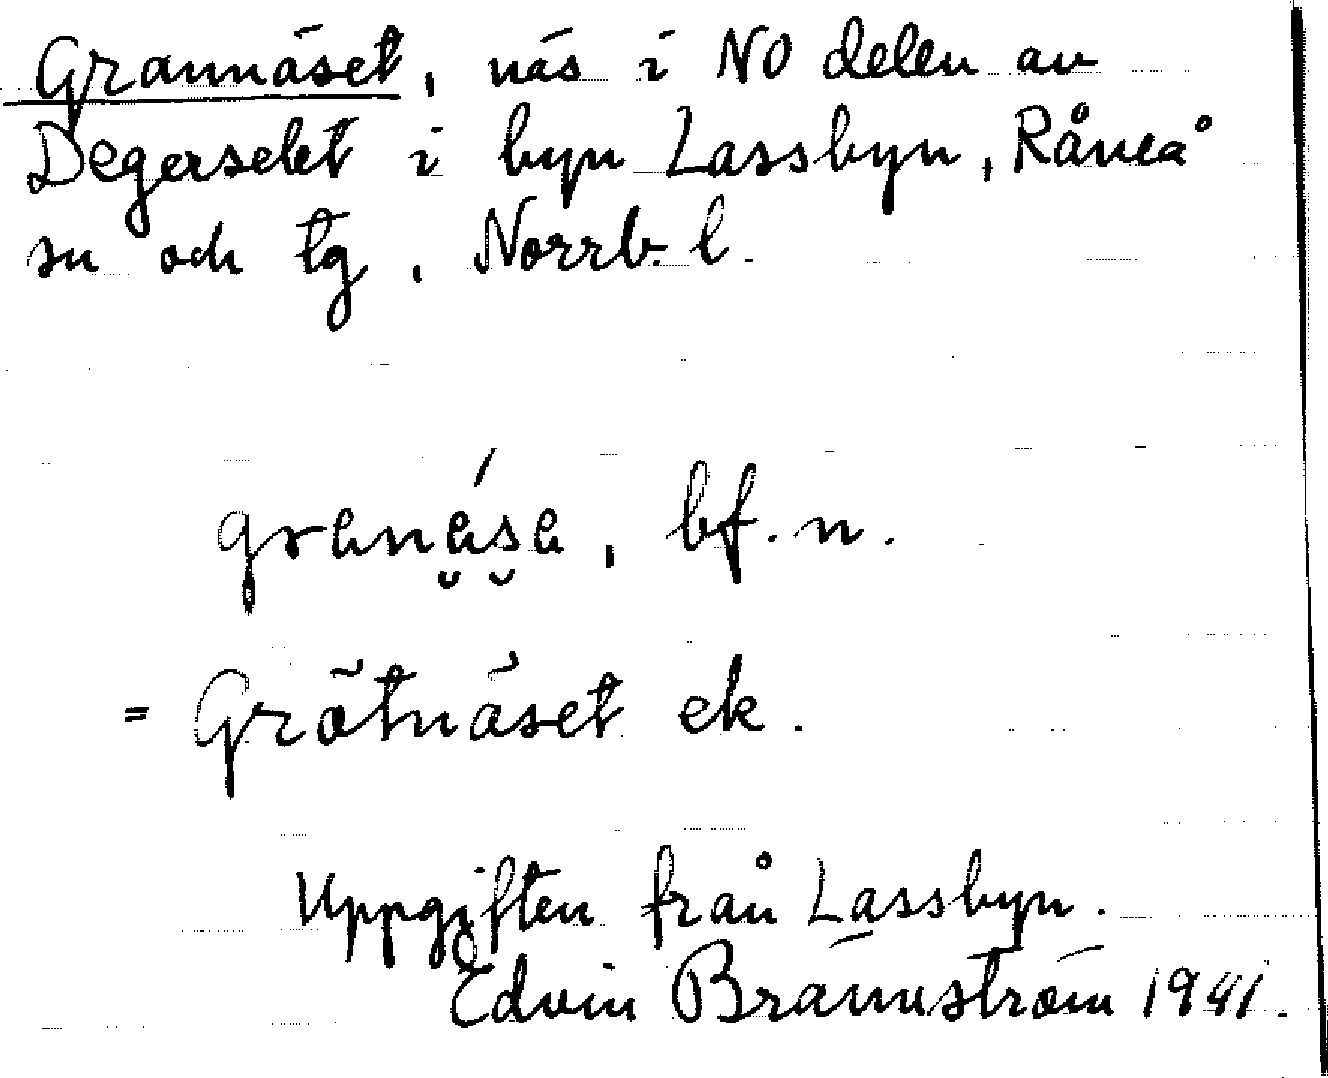 Grannäset, näs i NO delen av
Degerselet i byn Lassbyn, Råneå
sn och tg, Norrb. l.
bf. n.
= Grötnäset ek.
Uppgiften från Lassbyn.
Edvin Brännström 1941.